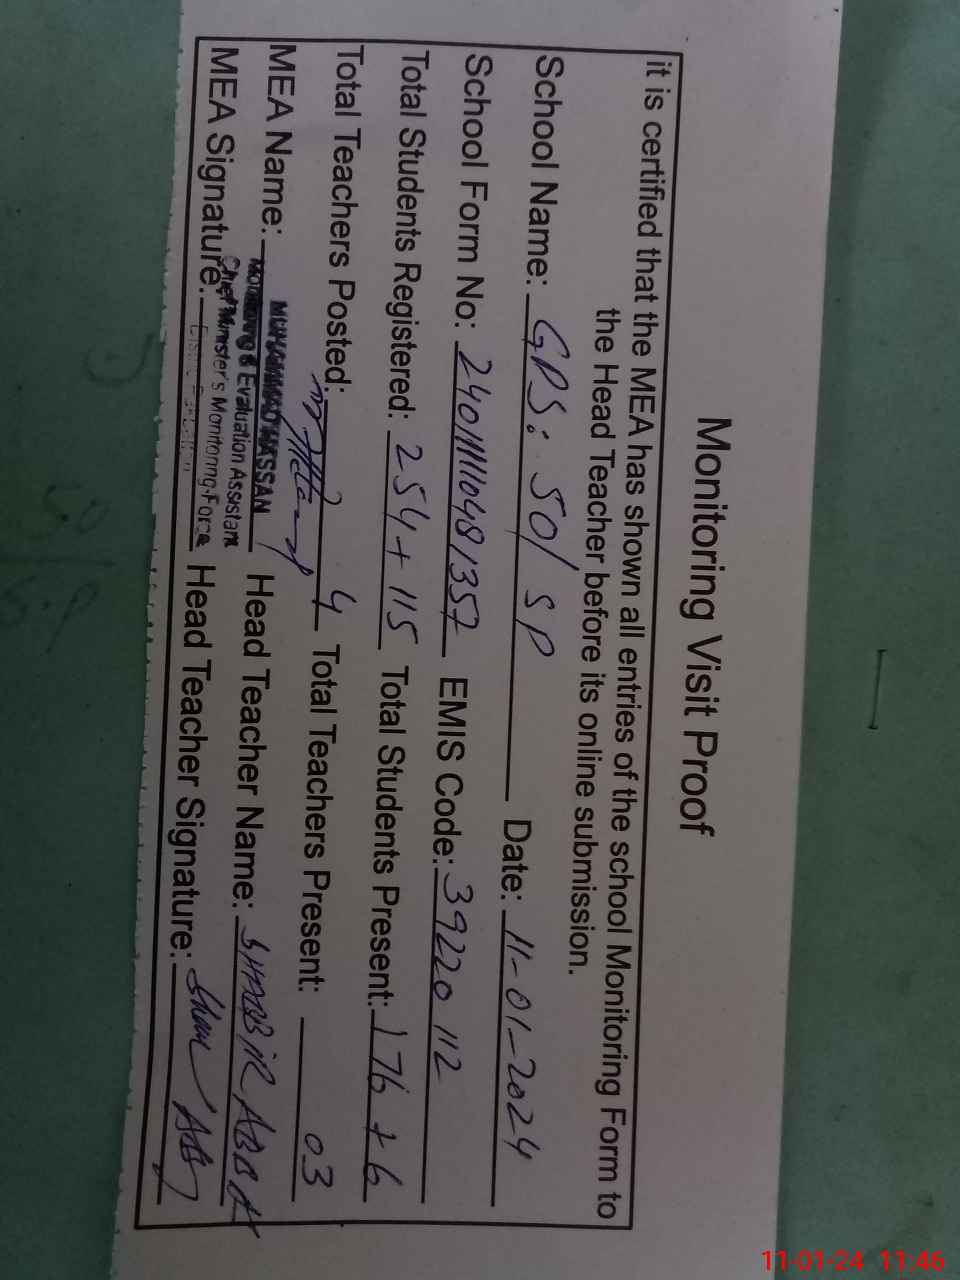 Monitoring Visit Proof
it is certified that the MEA has shown all entries of the school Monitoring Form to
the Head Teacher before its online submission.
School Name: GPS: 501 SP Date: 11-01-2024
School Form No: EMIS Code: 39220 112
Total Students Registered: 254 + 115 Total Students Present: 176 + 6
Total Teachers Posted: 4 Total Teachers Present: 03
MEA Name: MUHAMMAD HASSAN Head Teacher Name:
Monitoring & Evaluation Assistant
Chief Minister's Monitoring Force
MEA Signature: Head Teacher Signature:
11-01-24 11:46